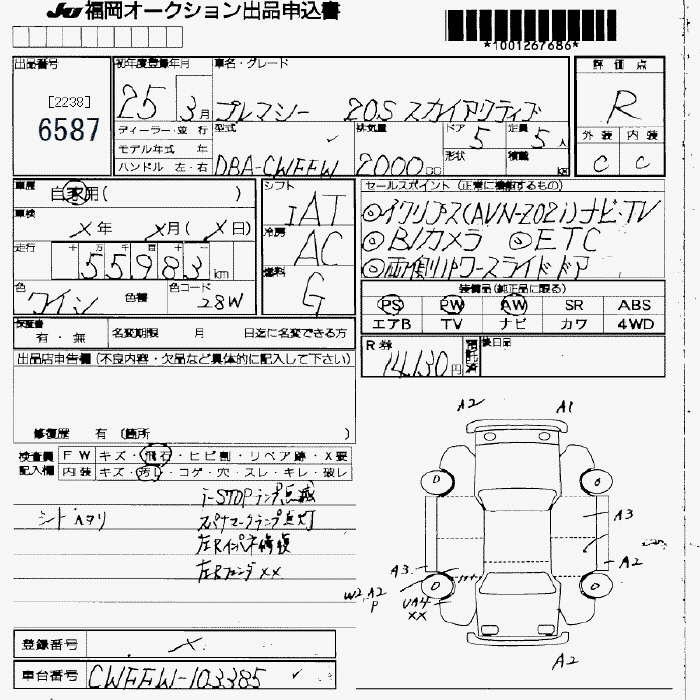 JU 福岡オークション出品申込書
*1001267686*
出品番号 初年度登録年月 車名・グレード 評価点
[2238]
6587
25 3月 プレマシー 20S スカイアクティブ R
ディーラー・並行 型式 排気量 ドア 定員 外装 内装
モデル年式 年 5 5人
ハンドル 左・右 DBA-CWFFW 2000cc 形状 積載 kg C C
車歴 自家用( ) シフト IAT セールスポイント (正常に機能するもの)
車検 X年 X月 (X日) ◎イクリプス(AVN-Z02i)ナビ・TV
走行 十 万 千 百 十 一 冷房 AC ◎Bカメラ ◎ETC
55983km 燃料 G ◎両側パワースライドドア
色 ワイン 色替 色コード 28W 装備品(純正品に限る)
PS PW AW SR ABS
エアB TV ナビ カワ 4WD
保証書 有・無 名変期限 月 日迄に名変できる方
R券 14,130円 預託済 後日品
出品店申告欄(不良内容・欠品など具体的に記入して下さい)
修復歴 有 (箇所 )
検査員 FW キズ・飛石・ヒビ割・リペア跡・X要
記入欄 内装 キズ・汚れ・コゲ・穴・スレ・キレ・破レ
i-STOPランプ点滅
シートヘタリ スパナマークランプ点灯
左Rインパネ修復
左Rフェンダ XX
A2 A1
A3
A2
A3
W2 A2
P
UA4
XX
A2
登録番号 X
車台番号 CWFFW-103385